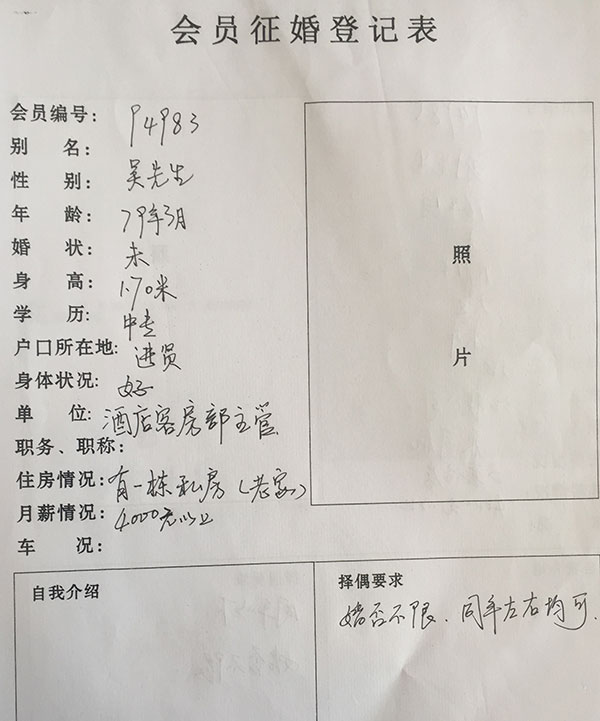 会员征婚登记表
会员编号: P4983
别 名:
性 别: 吴先生
年 龄: 79年3月
婚 状: 未
身 高: 1.70米
学 历: 中专
户口所在地: 进贤
身体状况: 好
单 位: 酒店客房部主管
职务、职称:
住房情况: 有一栋私房(老家)
月薪情况: 4000元以上
车 况:
照
片
自我介绍
择偶要求
婚否不限、同年左右均可.